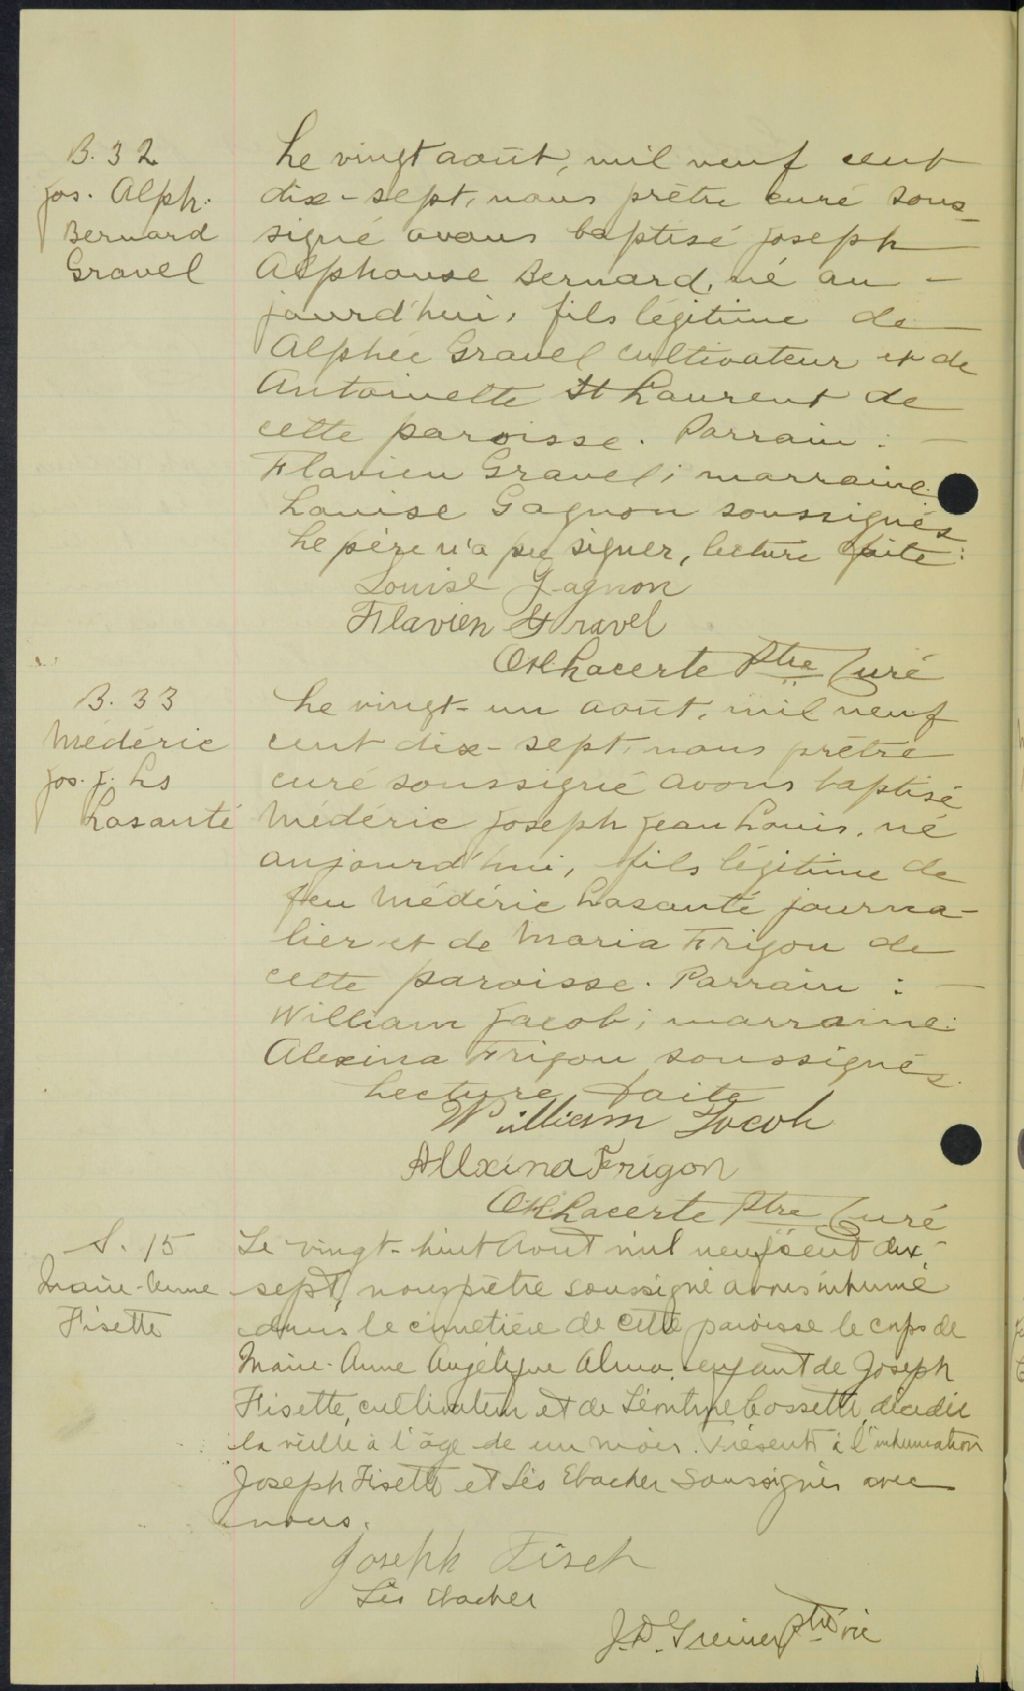 B. 32
Jos. Alph.
Bernard
Gravel
Le vingt août, mil neuf cent
dix-sept, nous prêtre curé sous-
signé avons baptisé Joseph
Alphonse Bernard, né au-
jourd'hui, fils légitime de
Alphée Gravel cultivateur et de
Antoinette St Laurent de
cette paroisse. Parrain :
Flavien Gravel; marraine:
Louise Gagnon soussignés
Le père n'a pu signer, lecture faite:
Louise Gagnon
Flavien Gravel
Lacerte Ptre Curé
B. 33
Médéric
Jos. J. Ls
Lasanté
Le vingt-un août, mil neuf
cent dix-sept, nous prêtre
curé soussigné avons baptisé
Médéric Joseph Jean Louis, né
aujourd'hui, fils légitime de
feu Médéric Lasanté journa-
lier et de Maria Frigon de
cette paroisse. Parrain :
William Jacob; marraine:
Alexina Frigon soussignés
Lecture faite
William Jacob
Allexina Frigon
Lacerte Ptre Curé
S. 15
Marie-Anne
Fisette
Le vingt-huit Aout mil neuf cent dix-
sept, nous prêtre soussigné avons inhumé
dans le cimetière de cette paroisse le corps de
Marie-Anne Angélique Alma enfant de Joseph
Fisette, cultivateur et de Léontine Cossette, décédée
la veille à l'âge de un mois. Présents à l'inhumation
Joseph Fisette et Léo Ebacher soussignés avec
nous.
Joseph Fiset
Léo Ebacher
J. D. ptre vic